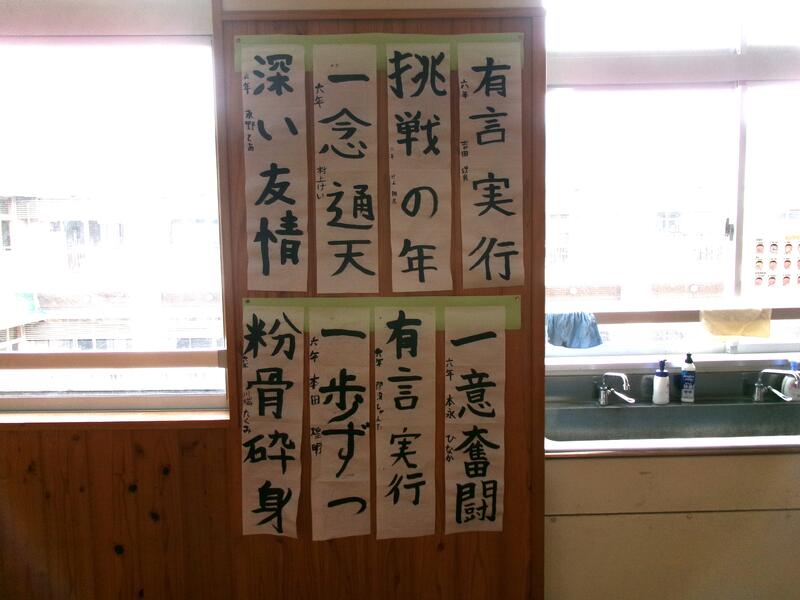 有言実行
六年
吉田
挑戦の年
一念通天
六年 村上けい
深い友情
六年
一意奮闘
六年 本永 ひなか
有言実行
六年
一歩ずつ
六年 本田 聡明
粉骨砕身
川端 たくみ